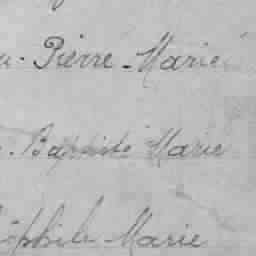 u. Pierre - Marie
. Baptiste Marie
éophile Marie